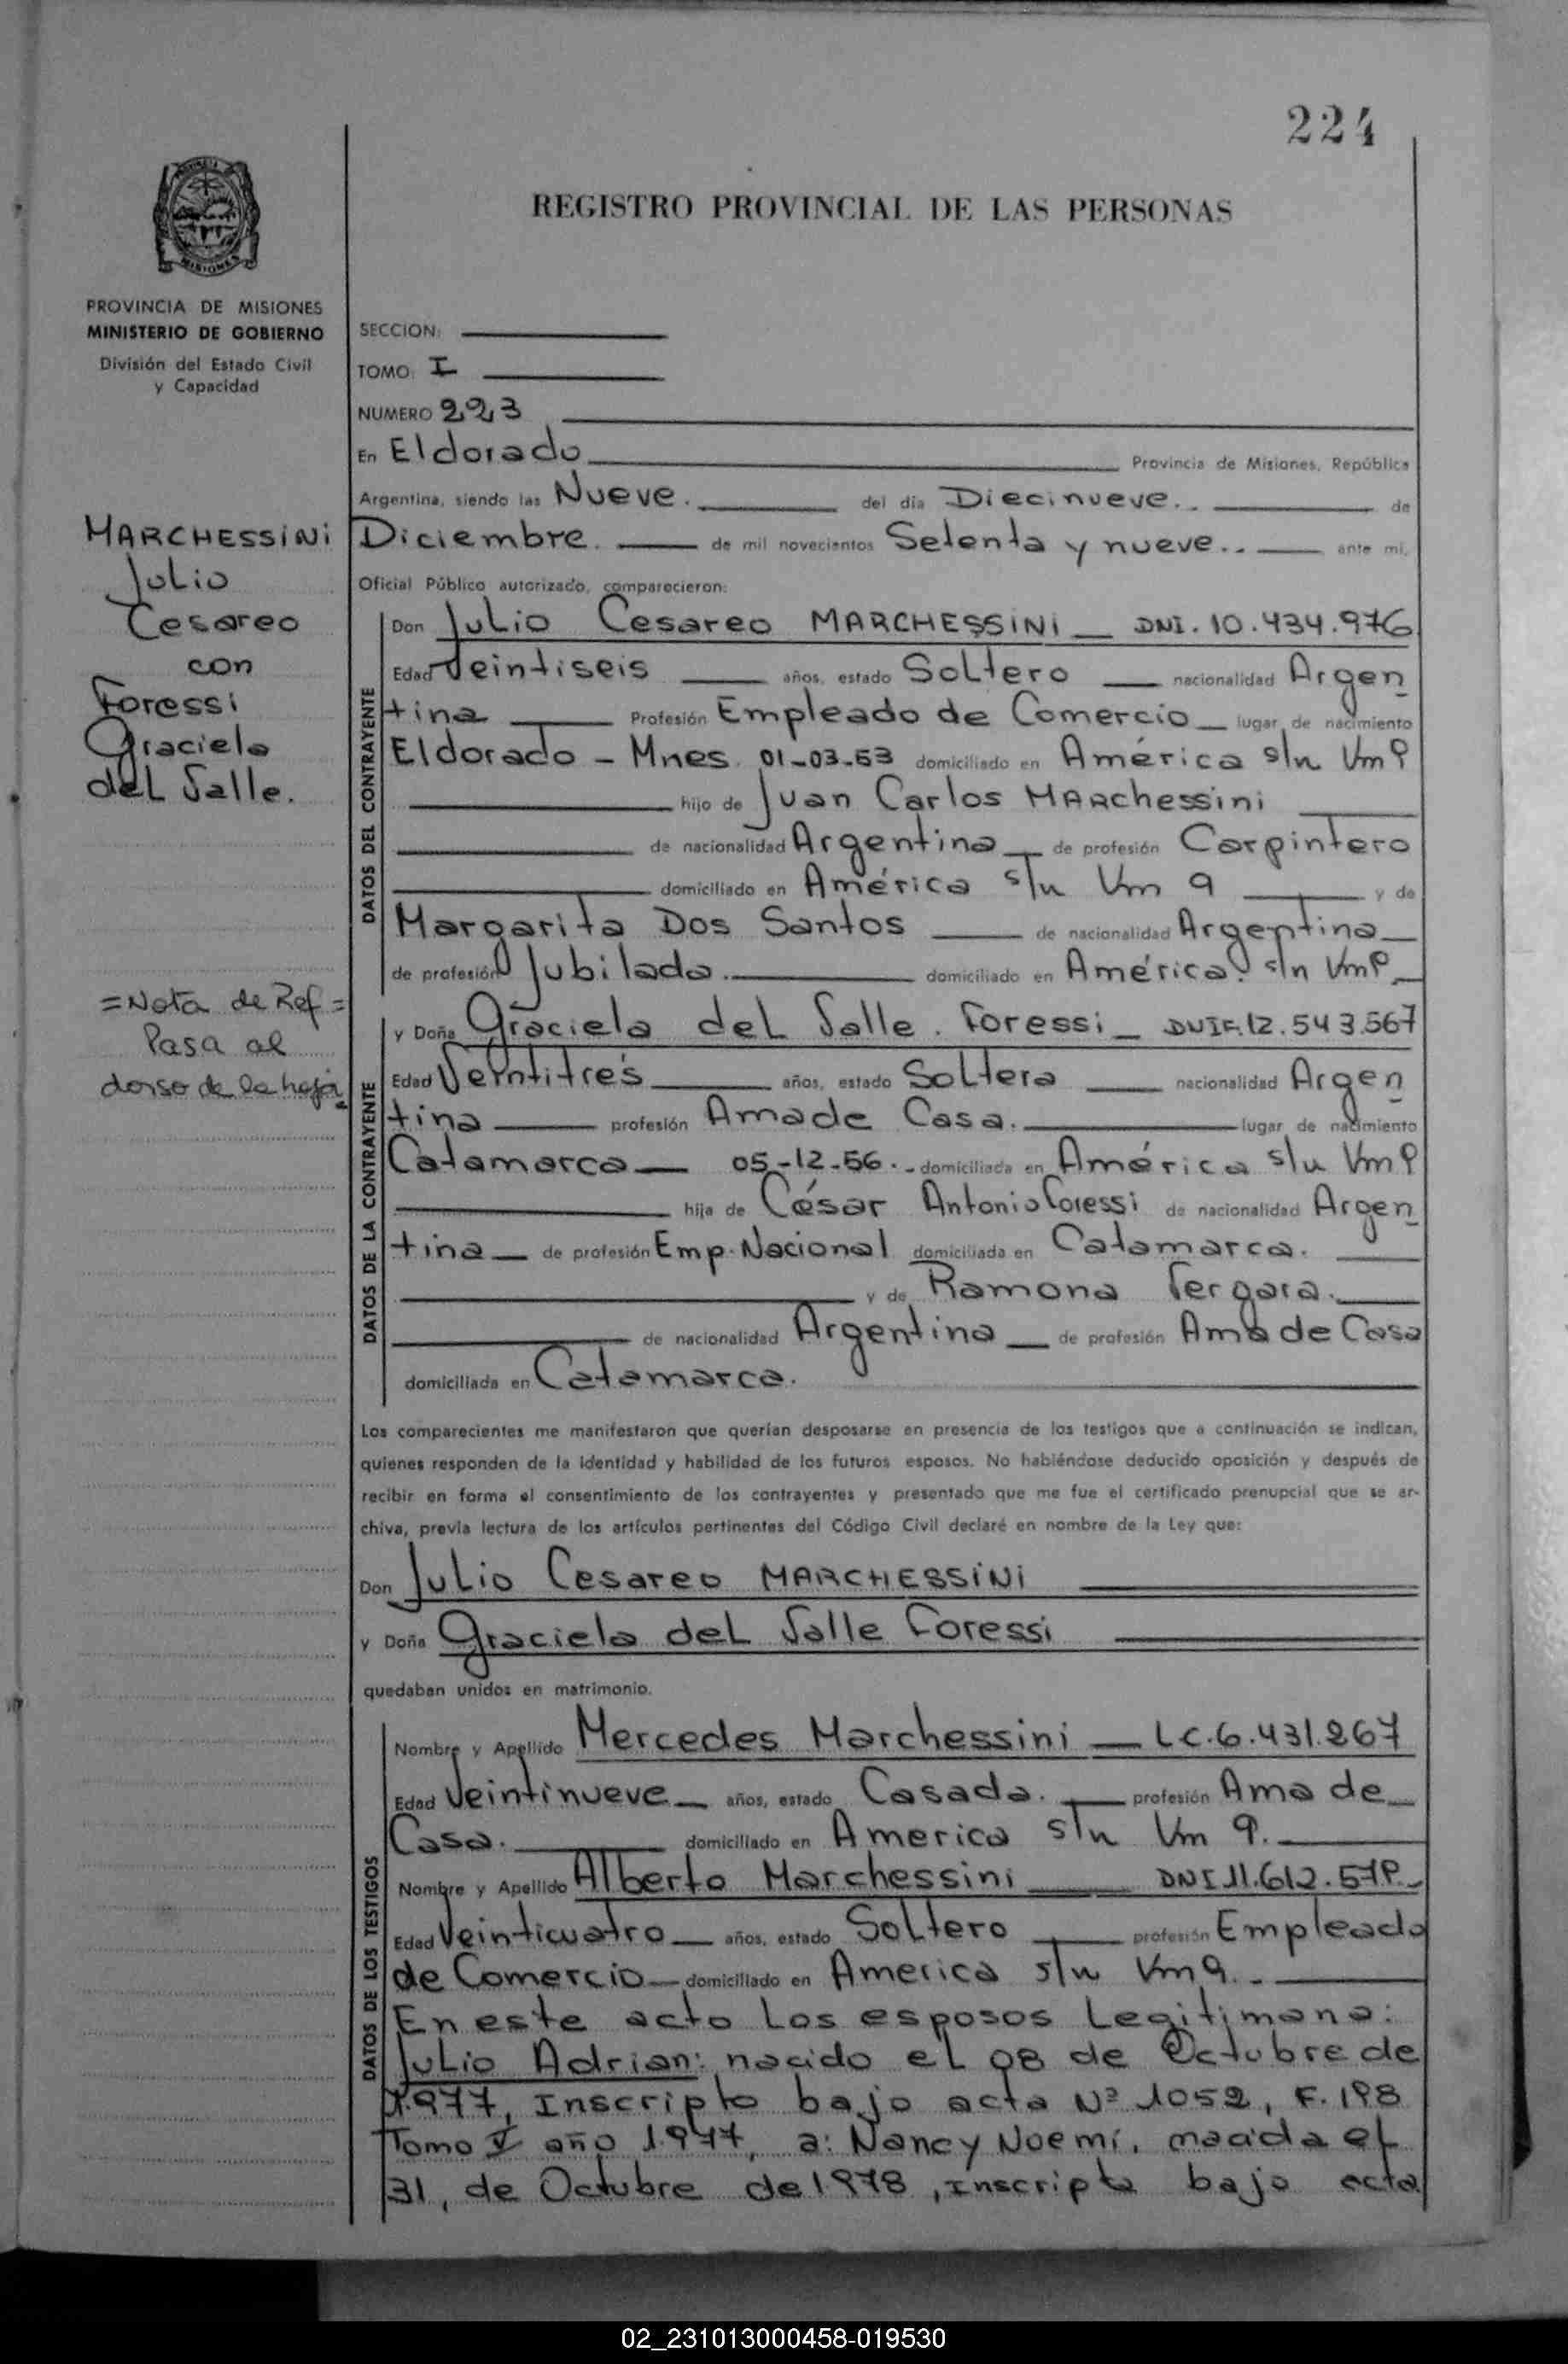 224
REGISTRO PROVINCIAL DE LAS PERSONAS
PROVINCIA DE MISIONES
MINISTERIO DE GOBIERNO
División del Estado Civil
y Capacidad
SECCION:
TOMO: I
NUMERO 223
En Eldorado Provincia de Misiones, República
Argentina, siendo las Nueve. del día Diecinueve.. de
Diciembre. de mil novecientos Setenta y nueve.. ante mi,
Oficial Público autorizado, comparecieron:
MARCHESSINI
Julio
Cesareo
con
Foressi
Graciela
del Valle.
= Nota de Ref =
Pasa al
dorso de la hoja
DATOS DEL CONTRAYENTE
Don Julio Cesareo MARCHESSINI DNI. 10.434.976
Edad Veintiseis años, estado Soltero nacionalidad Argen
tina Profesión Empleado de Comercio lugar de nacimiento
Eldorado - Mnes. 01-03-53 domiciliado en América s/n Km 9
hijo de Juan Carlos MARchessini
de nacionalidad Argentina de profesión Carpintero
domiciliado en América s/n Km 9 y de
Margarita Dos Santos de nacionalidad Argentina
de profesión Jubilada. domiciliado en América. s/n Km 9
DATOS DE LA CONTRAYENTE
y Doña Graciela del Valle. Foressi 12.543.567
Edad Veintitres años, estado Soltera nacionalidad Argen
tina profesión Ama de Casa. lugar de nacimiento
Catamarca 05-12-56.- domiciliada en América s/n Km 9
hija de César Antonio Foressi de nacionalidad Argen
tina de profesión Emp. Nacional domiciliada en Catamarca.
y de Ramona Vergara.
de nacionalidad Argentina de profesión Ama de Casa
domiciliada en Catamarca.
Los comparecientes me manifestaron que querían desposarse en presencia de los testigos que a continuación se indican,
quienes responden de la identidad y habilidad de los futuros esposos. No habiéndose deducido oposición y después de
recibir en forma el consentimiento de los contrayentes y presentado que me fue el certificado prenupcial que se ar-
chiva, previa lectura de los artículos pertinentes del Código Civil declaré en nombre de la Ley que:
Don Julio Cesareo MARCHESSINI
y Doña Graciela del Valle Foressi
quedaban unidos en matrimonio.
DATOS DE LOS TESTIGOS
Nombre y Apellido Mercedes Marchessini L.C. 6.431.267
Edad Veintinueve años, estado Casada. profesión Ama de
Casa. domiciliado en America s/n Km 9.
Nombre y Apellido Alberto Marchessini DNI
Edad Veinticuatro años, estado Soltero profesión Empleado
de Comercio domiciliado en America s/n Km 9.-
En este acto los esposos Legitiman a:
Julio Adrian: nacido el 08 de Octubre de
1.977, Inscripto bajo acta Nº 1052, F. 198
Tomo V año 1.977, a: Nancy Noemí, nacida el
31, de Octubre de 1978, inscripta bajo acta
02_231013000458-019530